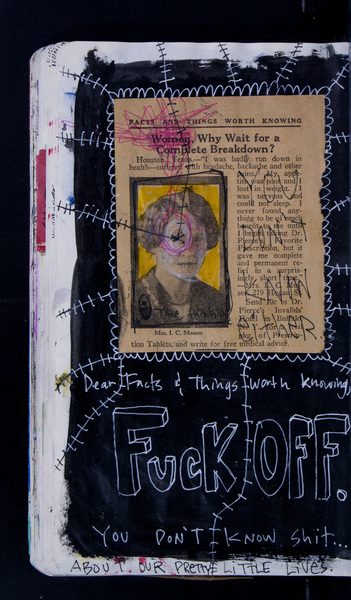 FACTS AND THINGS WORTH KNOWING
Women, Why Wait for a
Complete Breakdown?
Houston, Texas.—"I was badly run down in
health—suffered with headache, backache and other
pains. My appe-
tite was poor and I
lost in weight. I
was nervous and
could not sleep. I
never found any-
thing to be of much
benefit to me until
I began taking Dr.
Pierce's Favorite
Prescription, but it
gave me complete
and permanent re-
lief in a surpris-
ingly short time."
Mrs. I. C.
219 Hogan St.
Send 10c to Dr.
Pierce's Invalids'
Hotel in Buffalo
for
pkg. of Prescrip-
tion Tablets, and write for free medical advice.
Mrs. I. C. Mosser
Dear Facts & Things Worth Knowing,
FUCK OFF.
YOU DON'T KNOW Shit...
ABOUT OUR PRETTY LITTLE LIVES.